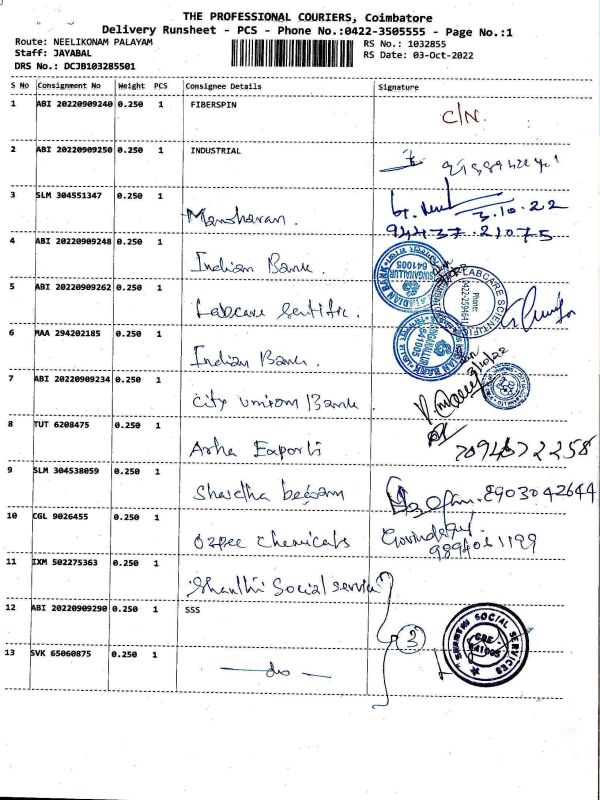 THE PROFESSIONAL COURIERS, Coimbatore
Delivery Runsheet - PCS - Phone No.:0422-3505555 - Page No.:1
Route: NEELIKONAM PALAYAM
Staff: JAYABAL
DRS No.: DCJB103285501
RS No.: 1032855
RS Date: 03-Oct-2022
S No Consignment No Weight PCS Consignee Details Signature
1 ABI 20220909240 0.250 1 FIBERSPIN C/N.
2 ABI 20220909250 0.250 1 INDUSTRIAL
3 SLM 304551347 0.250 1 Manoharan. 3.10.22
94437.21075
4 ABI 20220909248 0.250 1 Indian Bank.
INDIAN BANK SINGANALLUR 641005
5 ABI 20220909262 0.250 1 Labcare Sentific.
LABCARE SCIENTIFIC Phone:
6 MAA 294202185 0.250 1 Indian Bank.
INDIAN BANK SINGANALLUR 641005
7 ABI 20220909234 0.250 1 City Uniom Bank 3/10/22
8 TUT 6208475 0.250 1 Arha Exporti 7094672258
9 SLM 304538059 0.250 1 8903042644
10 CGL 9026455 0.250 1 Ozpee Chemicals Govindaraj.
9894061199
11 IXM 502275363 0.250 1 Shanthi Social Service
12 ABI 20220909290 0.250 1 SSS 3
SHANTHI SOCIAL SERVICES CBE 641005
13 SVK 65060875 0.250 1 — do —